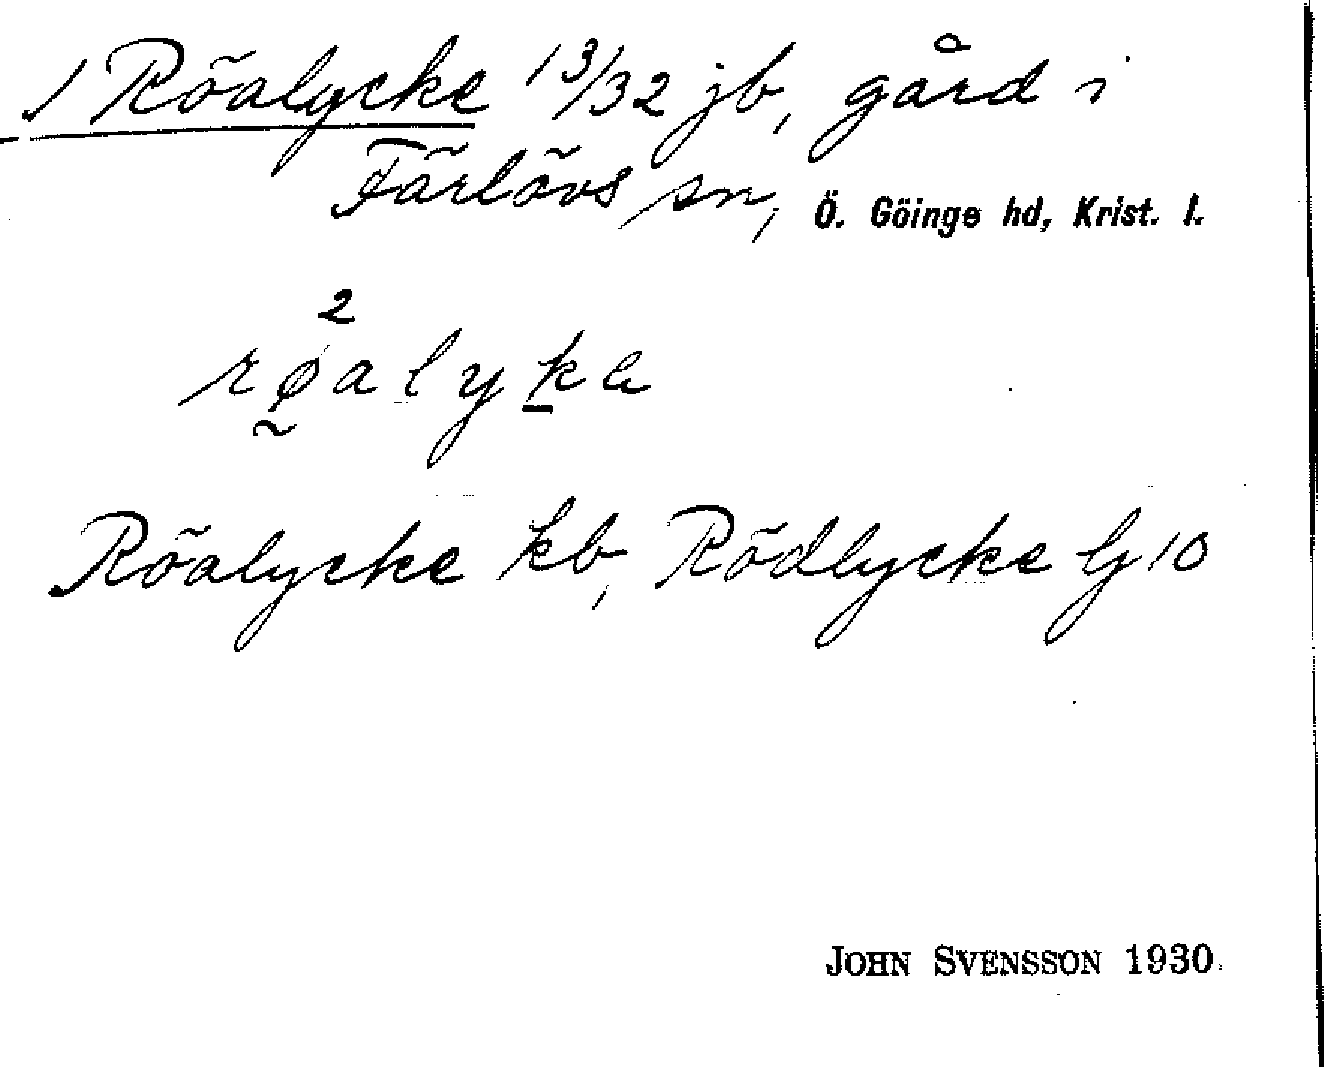 1 Röalycke 13/32 jb, gård i
Färlövs sn, Ö. Göinge hd, Krist. l.
2
røalyka
Röalycke kb, Rödlycke Gj 10
JOHN SVENSSON 1930.